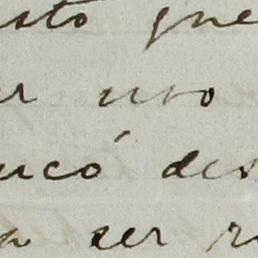 sto que
er uso
ucó des
a ser r